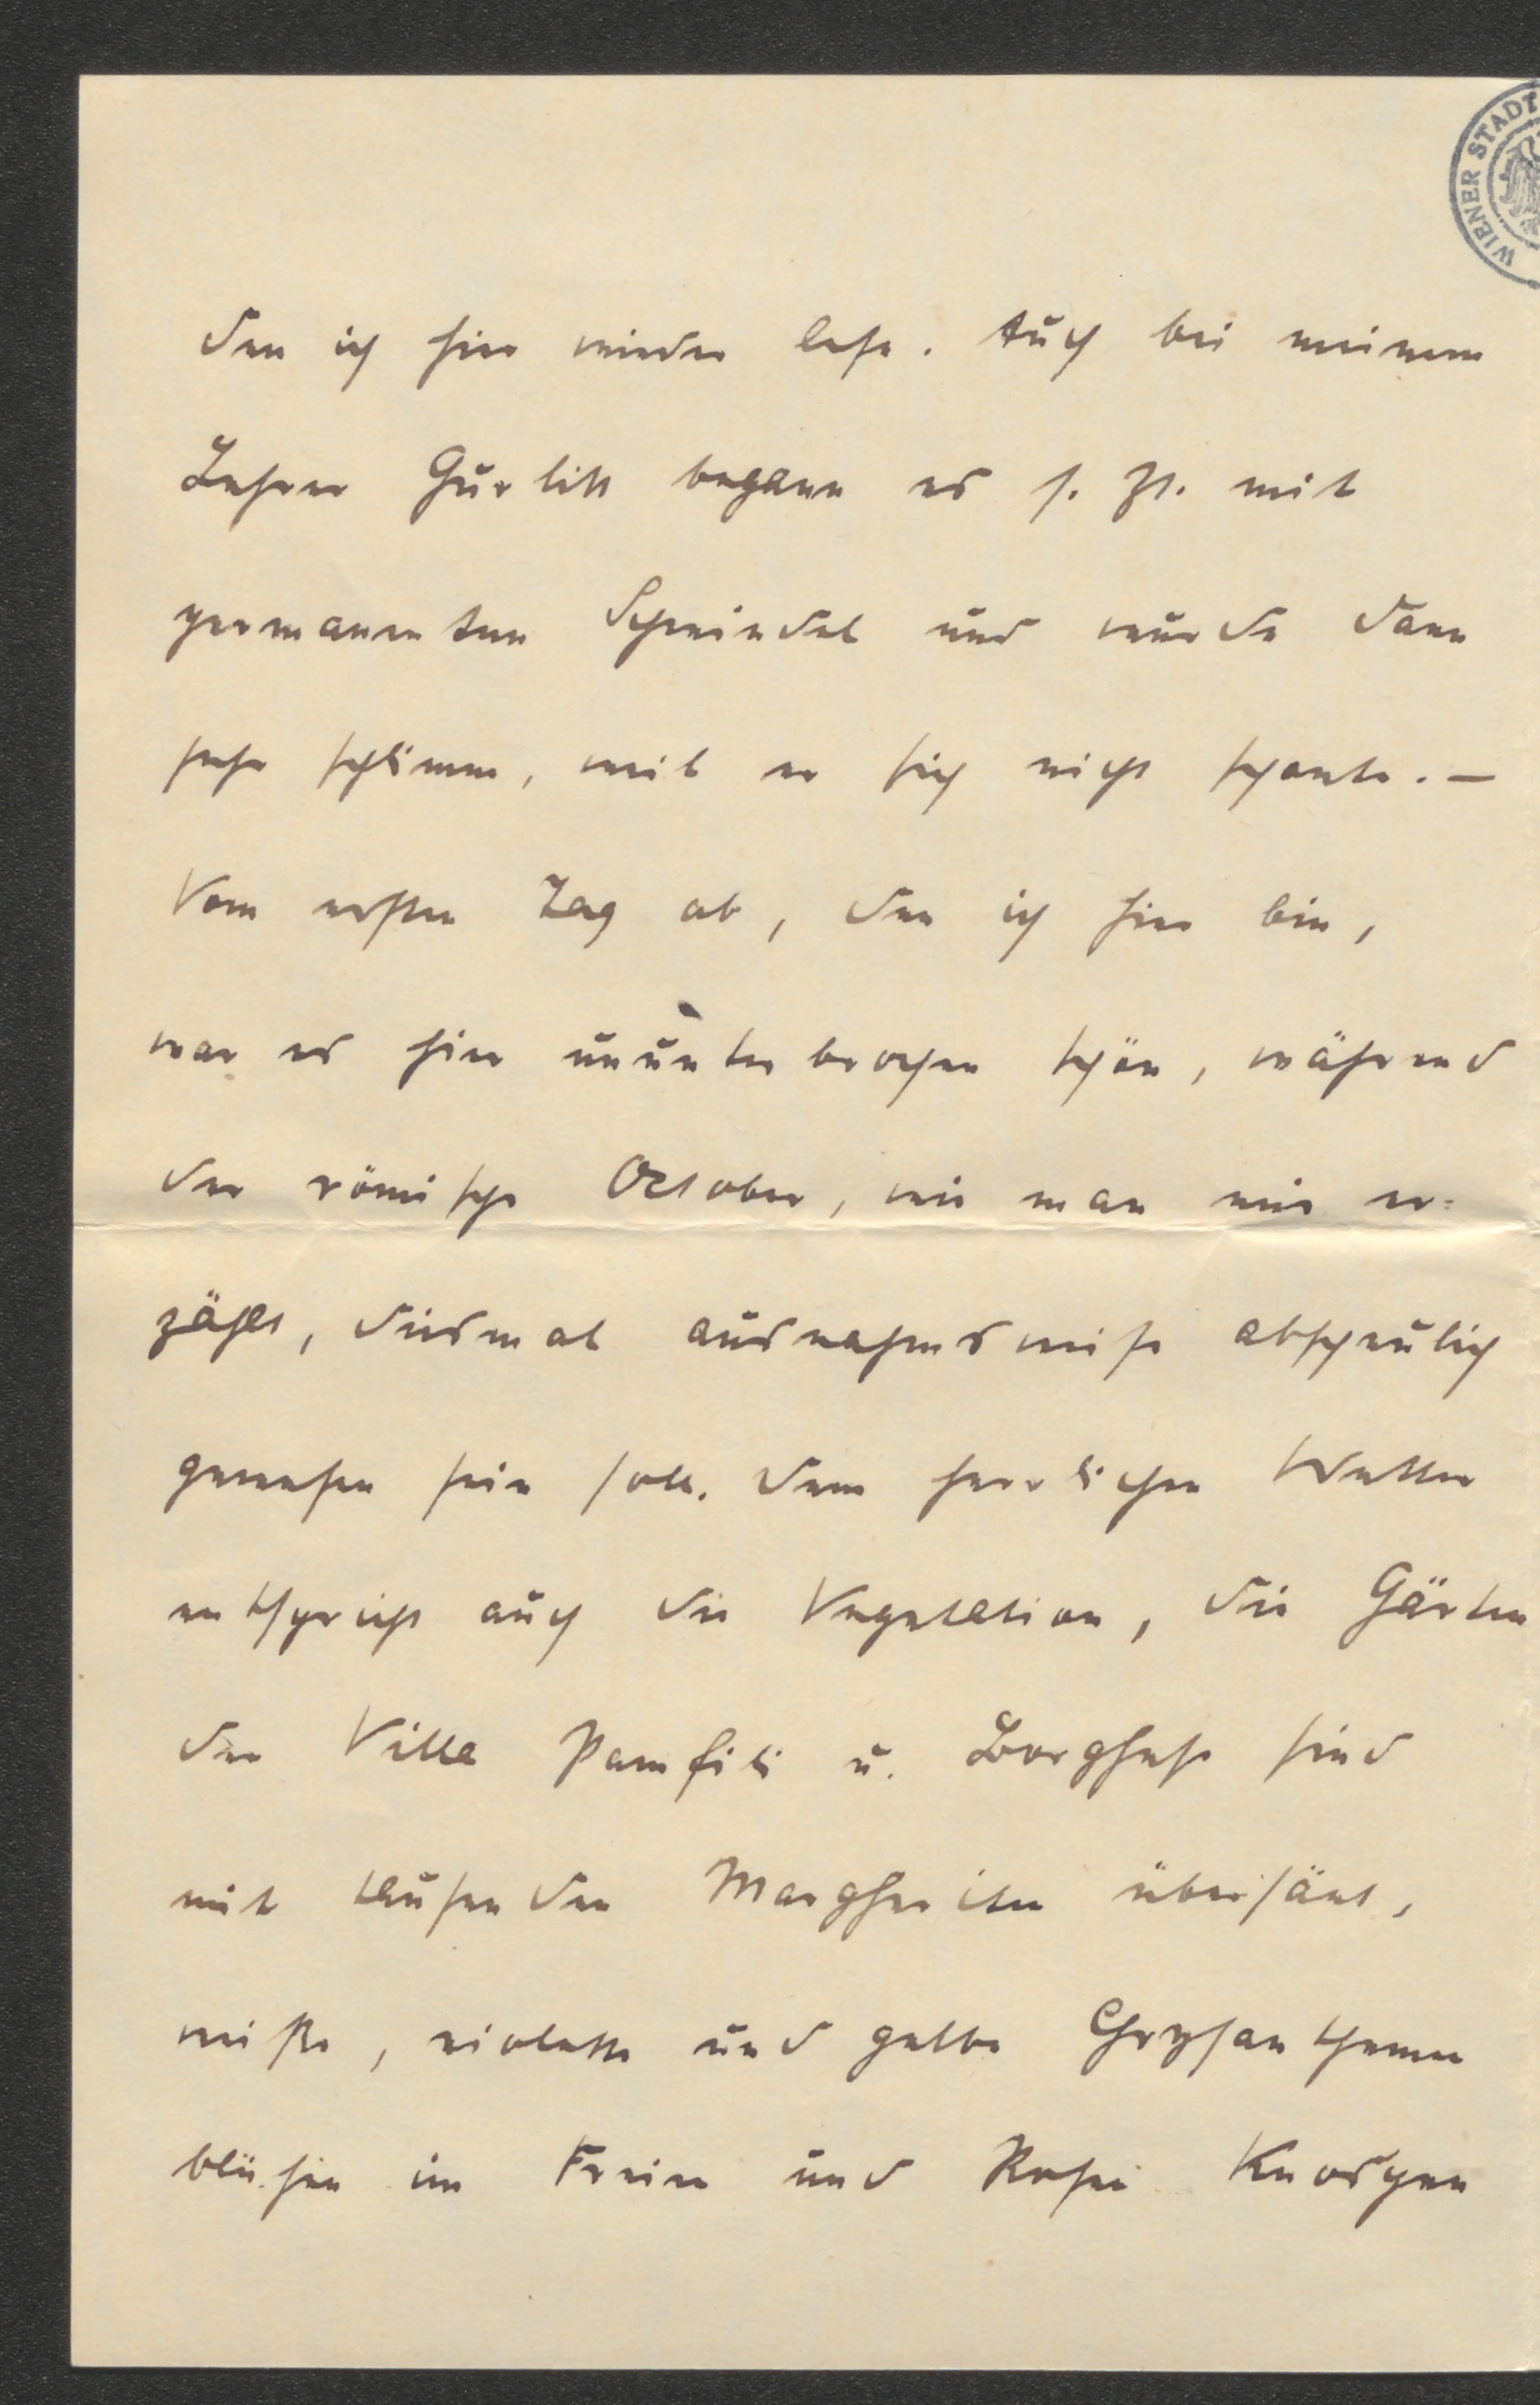 WIENER STADT
den ich hier wieder lese. Auch bei meinem
Lehrer Gurlitt begann es s. Zt. mit
permanenten Schwindel und wurde dann
sehr schlimm, weil er sich nicht schonte. —
Vom ersten Tag ab, den ich hier bin,
war es hier ununterbrochen schön, während
der römische October, wie man mir er=
zählt, diesmal ausnahmsweise abscheulich
gewesen sein soll. Dem herrlichen Wetter
entspricht auch die Vegetation, die Gärten
der Villa Pamfili u. Borghese sind
mit tausenden Margheriten übersäet,
weiße, violette und gelbe Chrysanthemen
blühen im Freien und Rosen Knospen